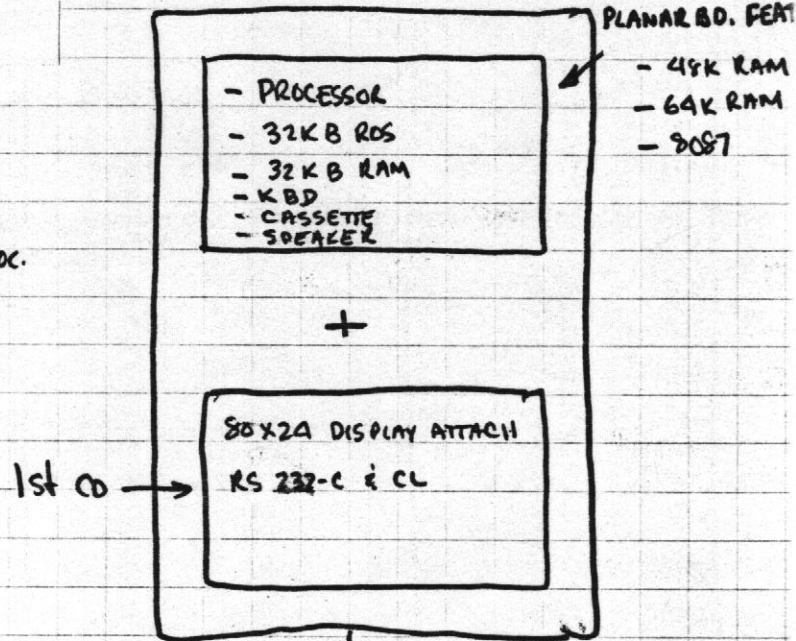 PLANAR BD. FEAT
- 48K RAM
- 64K RAM
- 8087
- PROCESSOR
- 32KB ROS
- 32KB RAM
- KBD
- CASSETTE
- SPEAKER
OC.
+
80X24 DISPLAY ATTACH
RS 232-C & CL
1st CD